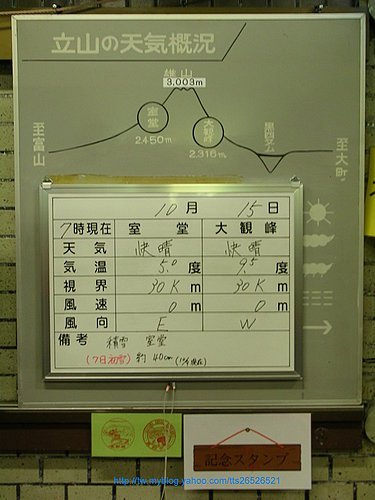 立山の天気概況
雄山
3,003m
室堂
2,450m
大観峰
2,316m
黒四ダム
至富山
至大町
10月 15日
7時現在 室堂 大観峰
天気 快晴 快晴
気温 5.0度 9.5度
視界 30Km 30Km
風速 0m 0m
風向 E W
備考 積雪 室堂
(7日初雪) 約40cm
記念スタンプ
http://tw.myblog.yahoo.com/tts26526521